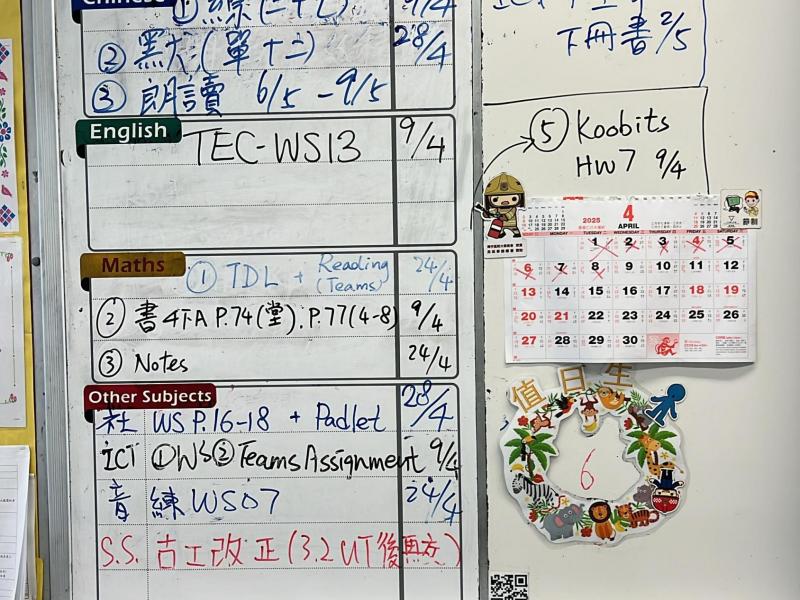 Chinese
① 練(二十七) 9/4
② 黑犬(單十二) 28/4
③ 朗讀 6/5 - 9/5
English
TEC-WS13 9/4
Maths
① TDL + Reading (Teams) 24/4
② 書4下A P.74(堂), P.77(4-8) 9/4
③ Notes 24/4
Other Subjects
社 WS P.16-18 + Padlet 28/4
ICT ①WS②Teams Assignment 9/4
音 練WS07 24/4
S.S. 古工改正(3.2 UT後交)
下冊書 2/5
⑤ Koobits
HW7 9/4
節制
2025 4
APRIL
MONDAY TUESDAY WEDNESDAY THURSDAY FRIDAY SATURDAY
1 2 3 4 5
6 7 8 9 10 11 12
13 14 15 16 17 18 19
20 21 22 23 24 25 26
27 28 29 30
值日生
6